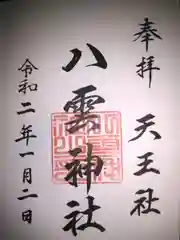 奉拝
天王社
八雲神社
令和二年一月二日